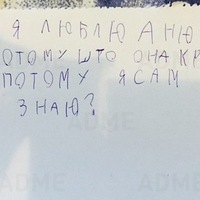 Я ЛЮБЛЮ АНЮ
ОТОМУ ШТО ОНА КР
ПОТОМУ Я САМ
ЗНАЮ?
ADME
ADME
ADME